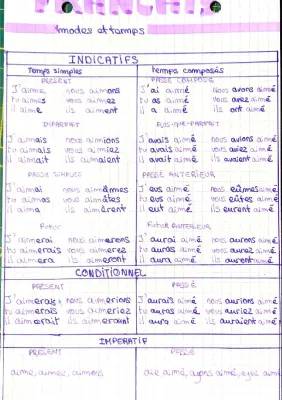 FRANCAIS
modes et temps
INDICATIFS
Temps simples Temps composés
PRÉSENT PASSÉ COMPOSÉ
J'aime nous aimons J'ai aimé Nous avons aimé
tu aimes vous aimez tu as aimé vous avez aimé
il aime ils aiment il a aimé ils ont aimé
IMPARFAIT PLUS-QUE-PARFAIT
J'aimais nous aimions J'avais aimé nous avions aimé
tu aimais vous aimiez tu avais aimé vous aviez aimé
il aimait ils aimaient il avait aimé ils avaient aimé
PASSÉ SIMPLE PASSÉ ANTÉRIEUR
J'aimai nous aimâmes J'eus aimé nous eûmes aimé
tu aimas vous aimâtes tu eus aimé vous eûtes aimé
il aima ils aimèrent il eut aimé ils eurent aimé
Futur Futur ANTÉRIEUR
J'aimerai nous aimerons J'aurai aimé nous aurons aimé
tu aimeras vous aimerez tu auras aimé vous aurez aimé
il aimera ils aimeront il aura aimé ils auront aimé
CONDITIONNEL
PRÉSENT PASSÉ
J'aimerais nous aimerions J'aurais aimé nous aurions aimé
tu aimerais vous aimeriez tu auras aimé vous auriez aimé
il aimerait ils aimeraient il aura aimé ils auraient aimé
IMPÉRATIF
PRÉSENT PASSÉ
aime, aimez, aimons aie aimé, ayons aimé, ayez aimé